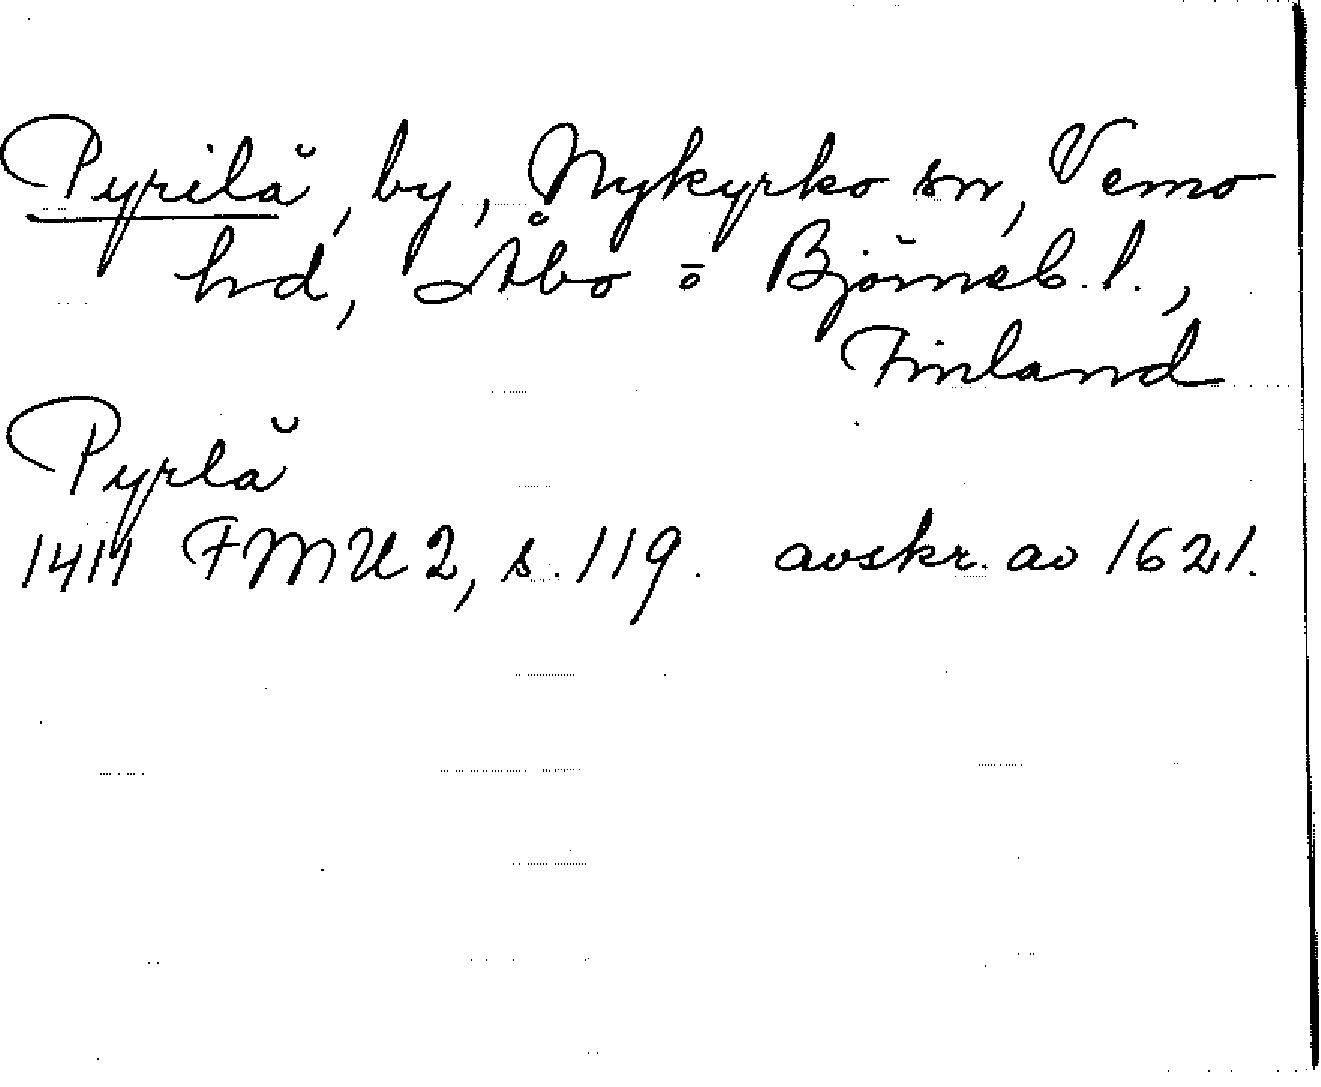 Pyrilä, by, Nykyrko sn, Vemo
hd, Åbo o Björneb. l.,
Finland
Pyrlä
1411 FMU 2, s. 119. avskr. av 1621.